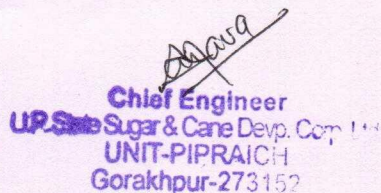 Chief Engineer
U.P. State Sugar & Cane Devp. Corp. Ltd
UNIT-PIPRAICH
Gorakhpur-273152